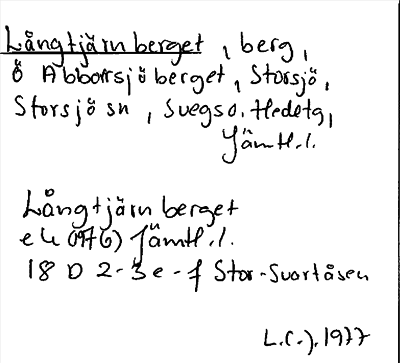 Långtjärnberget, berg,
ö Abborrsjöberget, Storsjö,
Storsjö sn, Svegs o. Hedetg,
Jämtl.l.
Långtjärnberget
ek (1976) Jämtl.l.
18 D 2-3 e-f Stor-Svartåsen
L.C.J. 1977